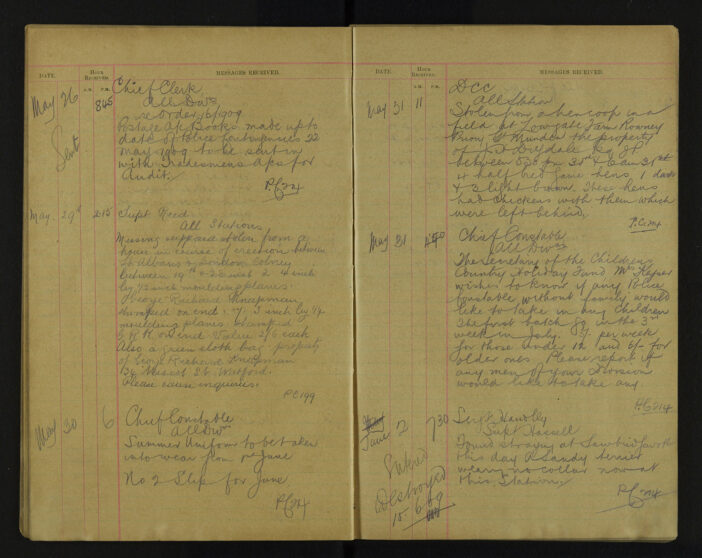 DATE.
HOUR RECEIVED.
MESSAGES RECEIVED.
A.M. P.M.
May 26
845
Chief Clerk
All Divns
re order 16/1909
Sent
Postage A/c Books made up to
date of Police Conferences 22
May 1909 to be sent in
with Tradesmens A/cs for
Audit.
PC 274
May 29th
2.15
Supt Reed
All Stations
Missing supposed stolen from a
house in course of erection between
St Albans & London Colney
between 19th & 22 inst 2 4 inch
by 1/2 inch moulding planes.
George Richard Knapman
stamped on end 1 3 inch by 1/4
moulding planes stamped
G K on end Value 2/6 each
Also a green cloth bag property
of George Richard Knapman
St. Watford.
Please cause inquiries.
PC 199
May 30
6
Chief Constable
All Divns
Summer Uniform to be taken
into wear from 1st June
No 2 Slip for June
PC 274
DATE.
HOUR RECEIVED.
MESSAGES RECEIVED.
A.M. P.M.
May 31
11
DCC
All
Stolen from a hen coop in a
field at Lowgate Farm
Gt Munden the property
of Drysdale Esq JP
between 5.30 pm 30th & 6 am 31st
4 half bred game hens, 1 dark
& 3 light brown. These hens
had chickens with them which
were left behind.
P.C. 274
May 31
Chief Constable
All Divns
The Secretary of the Childrens
Country Holiday Fund Mrs
wishes to know if any Police
Constable without family would
like to take in any Children
The first batch in the 3rd
week in July. 5/- per week
for those under 12 and 6/- for
older ones. Please report if
any men of your Division
would like to take any.
P.C. 214
June 2
7 30
Sergt Handley
Supt Hassell
Found straying at Sawbridgeworth
this day a Sandy terrier
wearing no collar now at
this Station.
PC 274
Destroyed
15.6.09